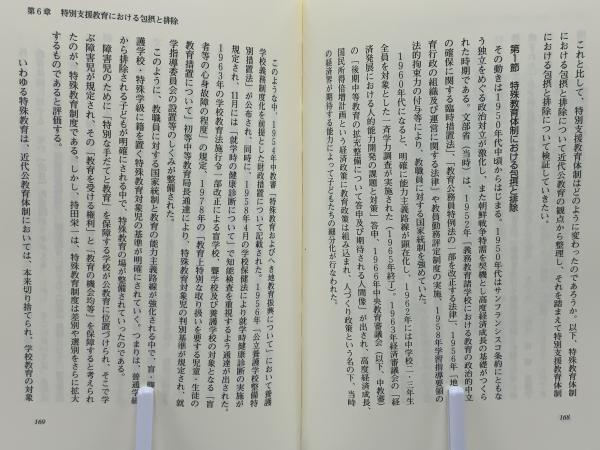 これと比して、特別支援教育体制はどのように変わったのであろうか。以下、特殊教育体制
における包摂と排除について近代公教育の観点から整理し、それを踏まえて特別支援教育体制
における包摂と排除について検証していきたい。
第1節 特殊教育体制における包摂と排除
その動きは1950年代中頃からはじまる。1950年代はサンフランシスコ条約にともな
う独立をめぐる政治対立が激化し、また朝鮮戦争特需を契機として高度経済成長の基礎がつくら
れた時期である。文部省（当時）は、1952年「義務教育諸学校における教育の政治的中立
の確保に関する臨時措置法」、「教育公務員特例法の一部を改正する法律」、1956年「地
育行政の組織及び運営に関する法律」や教員勤務評定制度の実施、1958年学習指導要領の
法的拘束力の付与等により、教職員に対する国家統制を強めていた。
1960年代になると、明確に能力主義路線が顕在化し、1962年には中学校二・三年生
全員を対象とした一斉学力調査が実施された（1965年終了）。1963年経済審議会の「経
済発展における人的能力開発の課題と対策」答申、1966年中央教育審議会（以下、中教審）
の「後期中等教育の拡充整備について答申及び期待される人間像」が出され、高度経済成長、
国民所得倍増計画という経済政策に教育政策は組み込まれ、人づくり政策という名の下、当時
の経済界が期待する能力によって子どもたちの細分化が行なわれた。
168
第6章 特別支援教育における包摂と排除
このような中、1954年中教審「特殊教育およびへき地教育振興について」において養護
学校義務制度化を前提とした財政措置について記載された。1956年「公立養護学校整備特
別措置法」が公布され、同時に、1958年4月の学校保健法により就学時健康診断の実施が
規定され、11月には「就学時の健康診断について」で知能検査を重視するよう通達が出された。
1963年の学校教育法施行令一部改正による盲学校、聾学校及び養護学校の対象となる「盲
者等の心身故障の程度」の規定、1978年の「教育上特別な取り扱いを要する児童・生徒の
教育措置について」初等中等教育局長通達により、特殊教育対象児の判別基準が規定され、就
学指導委員会の設置等のしくみが整備された。
このように、教職員に対する国家統制と教育の能力主義路線が強化される中で、盲・聾
護学校・特殊学級に籍を置く特殊教育対象児の基準が明確にされていく。つまりは、普通学級
から排除される子どもが明確にされる中で、特殊教育の場が整備されていったのである。
障害児のために「特別な手だてと教育」を保障する学校が公教育に位置づけられ、そこで学
ぶ障害児が規定され、その「教育を受ける権利」と「教育の機会均等」を保障すると考えられ
たのが、特殊教育制度である。しかし、持田栄一は、特殊教育制度は差別や選別をさらに拡大
するものであると評価する。
いわゆる特殊教育は、近代公教育体制においては、本来切り捨てられ、学校教育の対象
169